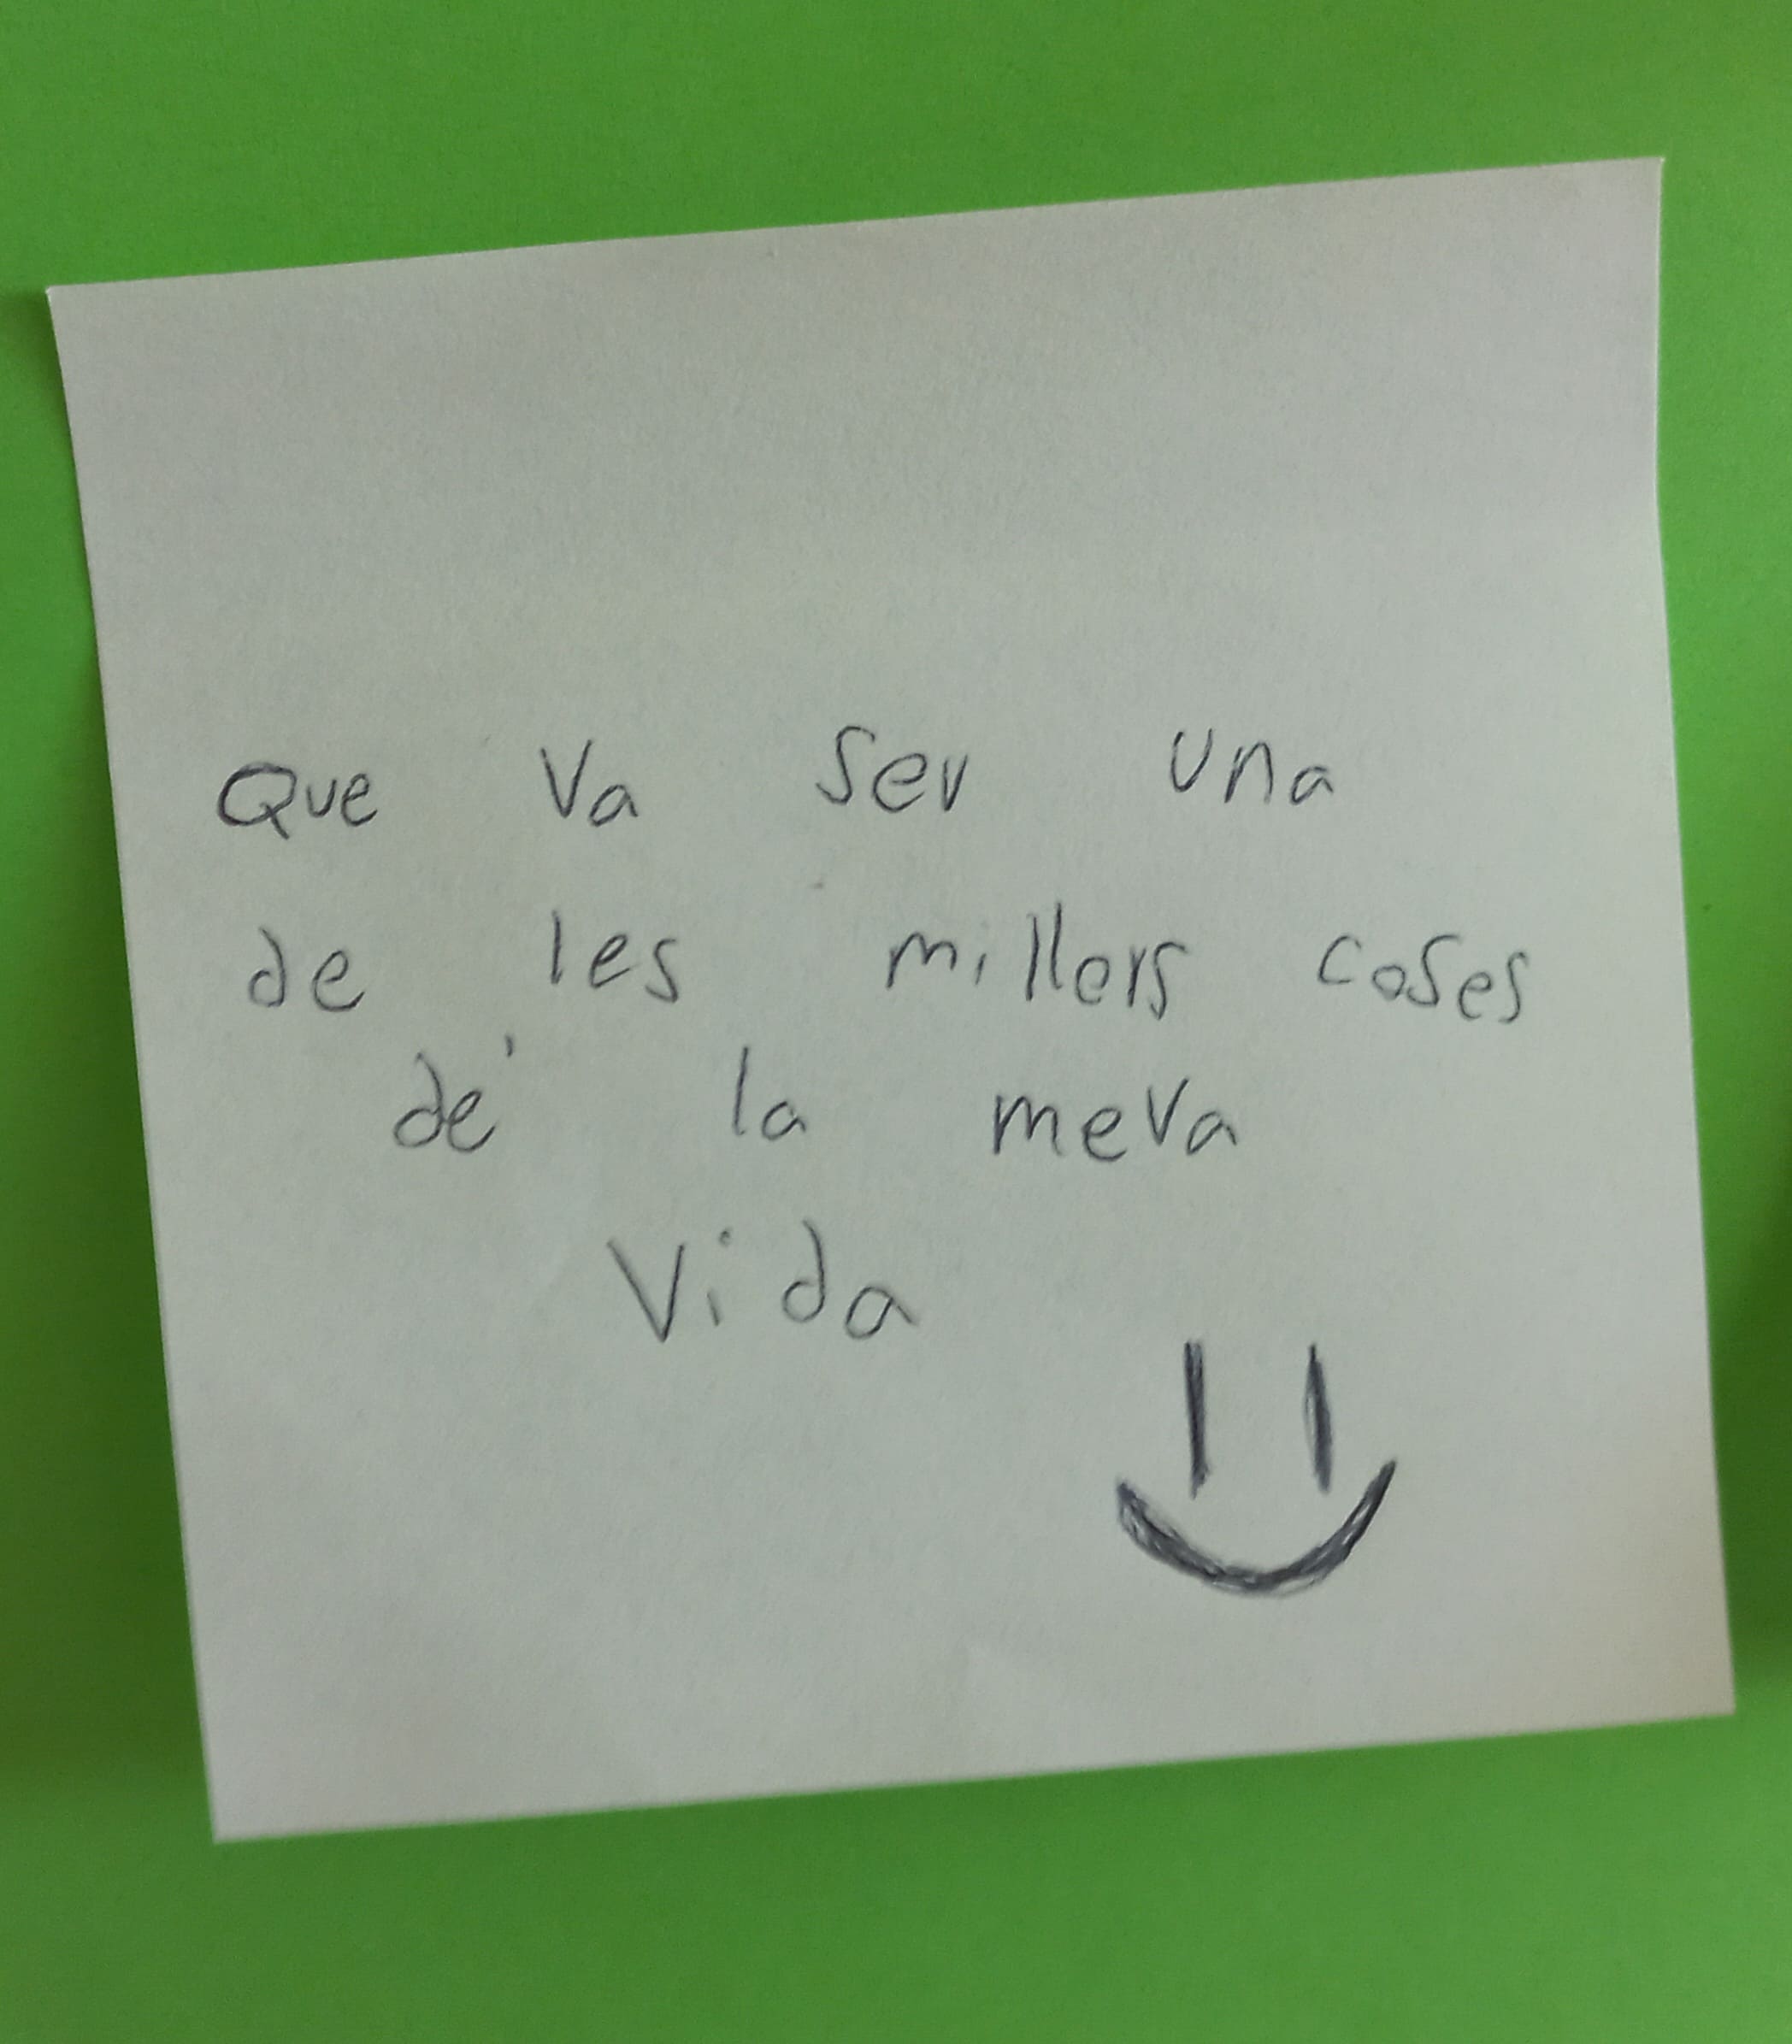 Que va ser una
de les millors coses
de la meva
Vida